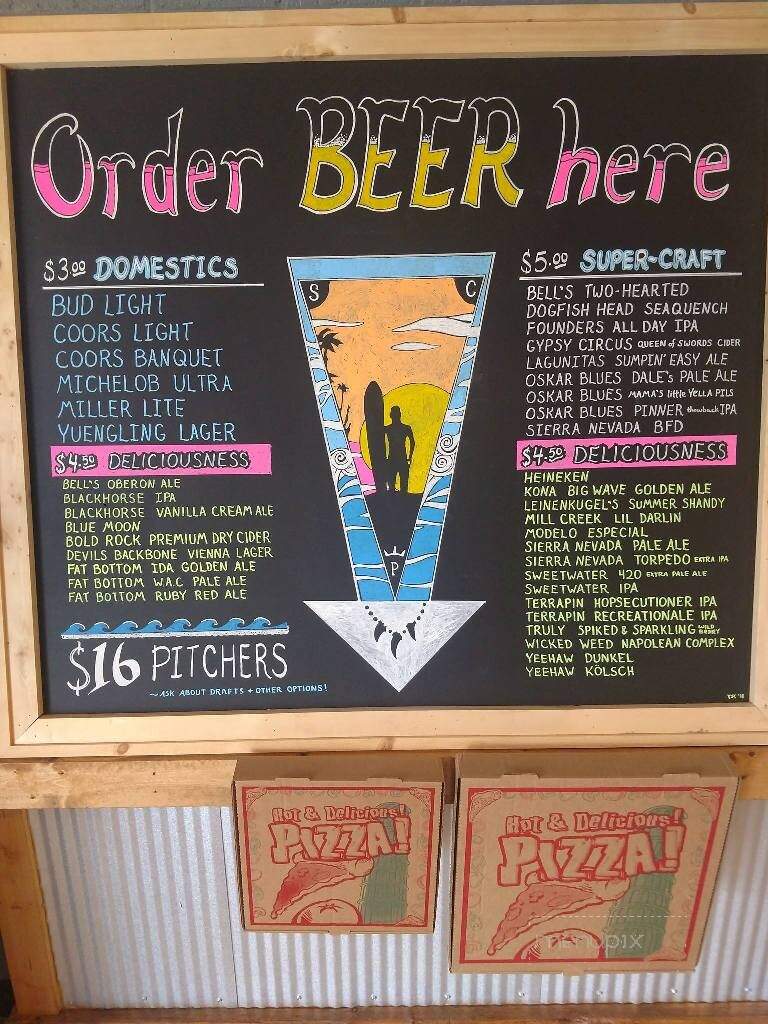 Order BEER here
$3.00 DOMESTICS
BUD LIGHT
COORS LIGHT
COORS BANQUET
MICHELOB ULTRA
MILLER LITE
YUENGLING LAGER
$4.50 DELICIOUSNESS
BELL'S OBERON ALE
BLACKHORSE IPA
BLACKHORSE VANILLA CREAM ALE
BLUE MOON
BOLD ROCK PREMIUM DRY CIDER
DEVILS BACKBONE VIENNA LAGER
FAT BOTTOM IDA GOLDEN ALE
FAT BOTTOM W.A.C. PALE ALE
FAT BOTTOM RUBY RED ALE
$16 PITCHERS
~ASK ABOUT DRAFTS + OTHER OPTIONS!
S C
P
$5.00 SUPER-CRAFT
BELL'S TWO-HEARTED
DOGFISH HEAD SEAQUENCH
FOUNDERS ALL DAY IPA
GYPSY CIRCUS QUEEN of SWORDS CIDER
LAGUNITAS SUMPIN' EASY ALE
OSKAR BLUES DALE'S PALE ALE
OSKAR BLUES MAMA'S little YELLA PILS
OSKAR BLUES PINNER throwback IPA
SIERRA NEVADA BFD
$4.50 DELICIOUSNESS
HEINEKEN
KONA BIG WAVE GOLDEN ALE
LEINENKUGEL'S SUMMER SHANDY
MILL CREEK LIL DARLIN
MODELO ESPECIAL
SIERRA NEVADA PALE ALE
SIERRA NEVADA TORPEDO EXTRA IPA
SWEETWATER 420 EXTRA PALE ALE
SWEETWATER IPA
TERRAPIN HOPSECUTIONER IPA
TERRAPIN RECREATIONALE IPA
TRULY SPIKED & SPARKLING WILD BERRY
WICKED WEED NAPOLEAN COMPLEX
YEEHAW DUNKEL
YEEHAW KÖLSCH
Hot & Delicious!
PIZZA!
Hot & Delicious!
PIZZA!
menupix